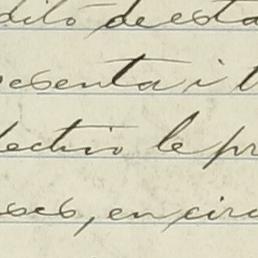 dito de esta
esenta i t
lectivo le pr
ses, en circ